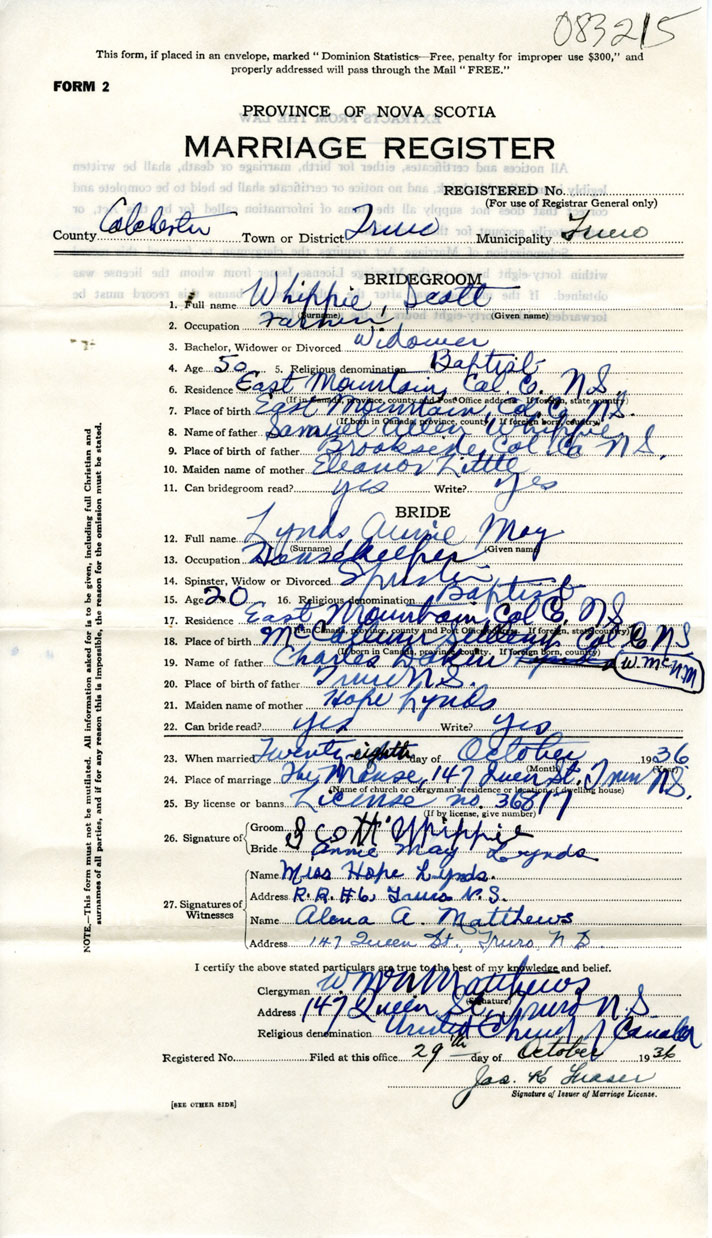 083215
This form, if placed in an envelope, marked "Dominion Statistics—Free, penalty for improper use $300," and
properly addressed will pass through the Mail "FREE."
FORM 2
PROVINCE OF NOVA SCOTIA
MARRIAGE REGISTER
REGISTERED No.
(For use of Registrar General only)
County Colchester Town or District Truro Municipality Truro
BRIDEGROOM
1. Full name Whippie, Scott
(Surname) (Given name)
2. Occupation Farmer
3. Bachelor, Widower or Divorced Widower
4. Age 50 5. Religious denomination Baptist
6. Residence East Mountain, Col. Co. N.S.
(If in Canada, province, county and Post Office address. If foreign, state country)
7. Place of birth East Mountain, Col. Co. N.S.
(If born in Canada, province, county. If foreign born, country)
8. Name of father Samuel Allen Whippie
9. Place of birth of father Brookside, Col Co N.S.
10. Maiden name of mother Eleanor Little
11. Can bridegroom read? yes Write? yes
BRIDE
12. Full name Lynds Annie May
(Surname) (Given name)
13. Occupation Housekeeper
14. Spinster, Widow or Divorced Spinster
15. Age 20 16. Religious denomination Baptist
17. Residence East Mountain Col Co N.S.
(If in Canada, province, county and Post Office address. If foreign, state country)
18. Place of birth McCallum Col Co N S
(If born in Canada, province, county. If foreign born, country)
19. Name of father Charles W. McN. M
20. Place of birth of father Truro N.S.
21. Maiden name of mother Hope Lynds
22. Can bride read? yes Write? yes
23. When married Twenty eighth day of October 1936
(Month) (Year)
24. Place of marriage The Manse, 147 Queen St. Truro N.S.
(Name of church or clergyman's residence or location of dwelling house)
25. By license or banns License no. 36817
(If by license, give number)
26. Signature of Groom Scott Whippie
Bride Annie May Lynds
27. Signatures of Witnesses Name Miss Hope Lynds.
Address R.R. #6, Truro N.S.
Name Alena A. Matthews
Address 147 Queen St., Truro, N S.
I certify the above stated particulars are true to the best of my knowledge and belief.
Clergyman Matthews
(Signature)
Address 147 Queen St. Truro N.S.
Religious denomination United Church of Canada
Registered No. Filed at this office 29th day of October 1936
Jas. K Fraser
Signature of Issuer of Marriage License.
[SEE OTHER SIDE]
NOTE.—This form must not be mutilated. All information asked for is to be given, including full Christian and
surnames of all parties, and if for any reason this is impossible, the reason for the omission must be stated.